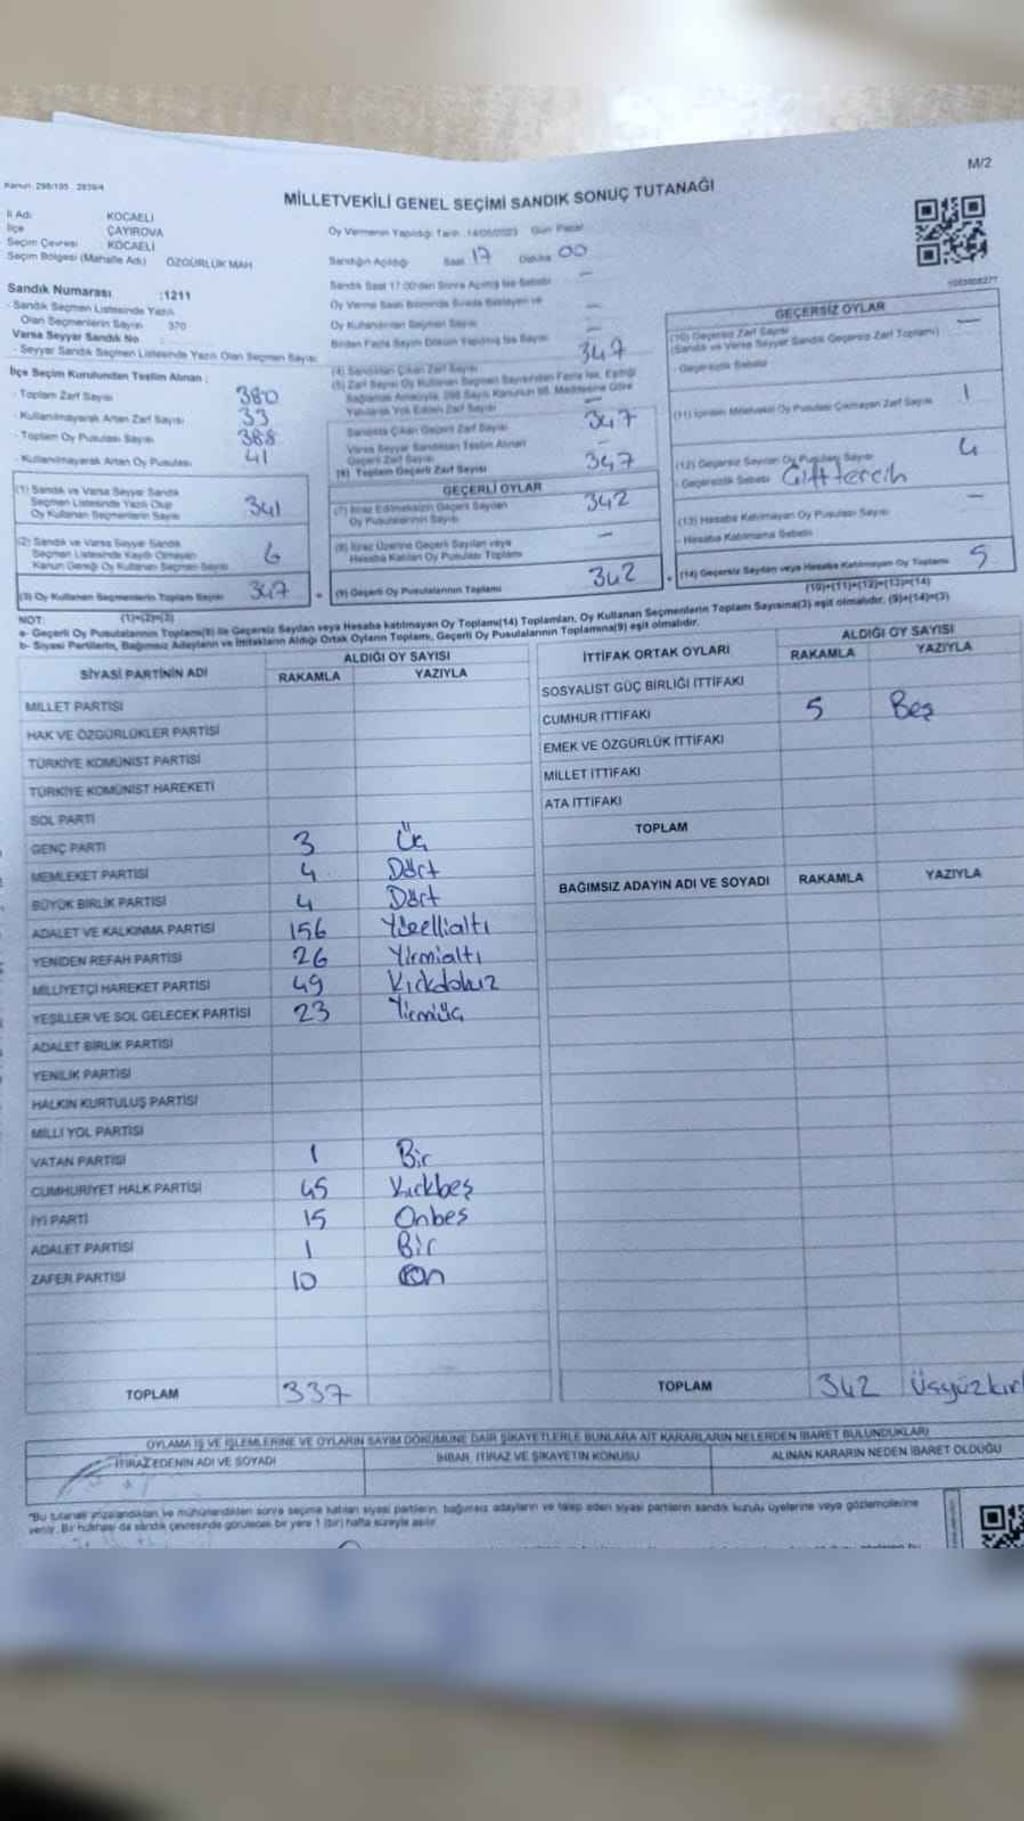 M/2
MİLLETVEKİLİ GENEL SEÇİMİ SANDIK SONUÇ TUTANAĞI
İl Adı KOCAELİ
İlçe ÇAYIROVA
Seçim Çevresi KOCAELİ
Seçim Bölgesi (Mahalle Adı) ÖZGÜRLÜK MAH
Oy Vermenin Yapıldığı Tarih 14/05/2023 Gün Pazar
Sandığın Açıldığı Saat 17 Dakika 00
Sandık Numarası :1211
- Sandık Seçmen Listesinde Yazılı
Olan Seçmenlerin Sayısı 370
Varsa Seyyar Sandık No
- Seyyar Sandık Seçmen Listesinde Yazılı Olan Seçmen Sayısı
İlçe Seçim Kurulundan Teslim Alınan :
- Toplam Zarf Sayısı 380
- Kullanılmayarak Artan Zarf Sayısı 33
- Toplam Oy Pusulası Sayısı 388
- Kullanılmayarak Artan Oy Pusulası 41
(1) Sandık ve Varsa Seyyar Sandık
Seçmen Listesinde Yazılı Olup
Oy Kullanan Seçmenlerin Sayısı 341
(2) Sandık ve Varsa Seyyar Sandık
Seçmen Listesinde Kayıtlı Olmayan
Kanun Gereği Oy Kullanan Seçmen Sayısı 6
(3) Oy Kullanan Seçmenlerin Toplam Sayısı 347
(1)+(2)=(3)
Sandık Saat 17:00'den Sonra Açılmış İse Sebebi —
(4) Sandıktan Çıkan Zarf Sayısı 347
Sandıkta Çıkan Geçerli Zarf Sayısı 347
Varsa Seyyar Sandıktan Teslim Alınan
Geçerli Zarf Sayısı —
(6) Toplam Geçerli Zarf Sayısı 347
GEÇERLİ OYLAR
(7) İtiraz Edilmeksizin Geçerli Sayılan
Oy Pusulalarının Sayısı 342
(8) İtiraz Üzerine Geçerli Sayılan veya
Hesaba Katılan Oy Pusulası Toplamı —
(9) Geçerli Oy Pusulalarının Toplamı 342
GEÇERSİZ OYLAR
(10) Geçersiz Zarf Sayısı —
(Sandık ve Varsa Seyyar Sandık Geçersiz Zarf Toplamı)
- Geçersizlik Sebebi
(11) İçinden Milletvekili Oy Pusulası Çıkmayan Zarf Sayısı 1
(12) Geçersiz Sayılan Oy Pusulası Sayısı 4
- Geçersizlik Sebebi Çift tercih
(13) Hesaba Katılmayan Oy Pusulası Sayısı —
- Hesaba Katılmama Sebebi
(14) Geçersiz Sayılan veya Hesaba Katılmayan Oy Toplamı 5
(10)+(11)+(12)+(13)=(14)
NOT:
a- Geçerli Oy Pusulalarının Toplamı(9) ile Geçersiz Sayılan veya Hesaba katılmayan Oy Toplamı(14) Toplamları, Oy Kullanan Seçmenlerin Toplam Sayısına(3) eşit olmalıdır. (9)+(14)=(3)
b- Siyasi Partilerin, Bağımsız Adayların ve İttifakların Aldığı Ortak Oyların Toplamı, Geçerli Oy Pusulalarının Toplamına(9) eşit olmalıdır.
SİYASİ PARTİNİN ADI ALDIĞI OY SAYISI
RAKAMLA YAZIYLA
MİLLET PARTİSİ
HAK VE ÖZGÜRLÜKLER PARTİSİ
TÜRKİYE KOMÜNİST PARTİSİ
TÜRKİYE KOMÜNİST HAREKETİ
SOL PARTİ
GENÇ PARTİ 3 Üç
MEMLEKET PARTİSİ 4 Dört
BÜYÜK BİRLİK PARTİSİ 4 Dört
ADALET VE KALKINMA PARTİSİ 156 Yüzellialtı
YENİDEN REFAH PARTİSİ 26 Yirmialtı
MİLLİYETÇİ HAREKET PARTİSİ 49 Kırkdokuz
YEŞİLLER VE SOL GELECEK PARTİSİ 23 Yirmiüç
ADALET BİRLİK PARTİSİ
YENİLİK PARTİSİ
HALKIN KURTULUŞ PARTİSİ
MİLLİ YOL PARTİSİ
VATAN PARTİSİ 1 Bir
CUMHURİYET HALK PARTİSİ 45 Kırkbeş
İYİ PARTİ 15 Onbeş
ADALET PARTİSİ 1 Bir
ZAFER PARTİSİ 10 On
TOPLAM 337
İTTİFAK ORTAK OYLARI ALDIĞI OY SAYISI
RAKAMLA YAZIYLA
SOSYALİST GÜÇ BİRLİĞİ İTTİFAKI
CUMHUR İTTİFAKI 5 Beş
EMEK VE ÖZGÜRLÜK İTTİFAKI
MİLLET İTTİFAKI
ATA İTTİFAKI
TOPLAM
BAĞIMSIZ ADAYIN ADI VE SOYADI RAKAMLA YAZIYLA
TOPLAM 342
OYLAMA İŞ VE İŞLEMLERİNE VE OYLARIN SAYIM DÖKÜMÜNE DAİR ŞİKAYETLERLE BUNLARA AİT KARARLARIN NELERDEN İBARET BULUNDUKLARI
İTİRAZ EDENİN ADI VE SOYADI İHBAR, İTİRAZ VE ŞİKAYETİN KONUSU ALINAN KARARIN NEDEN İBARET OLDUĞU